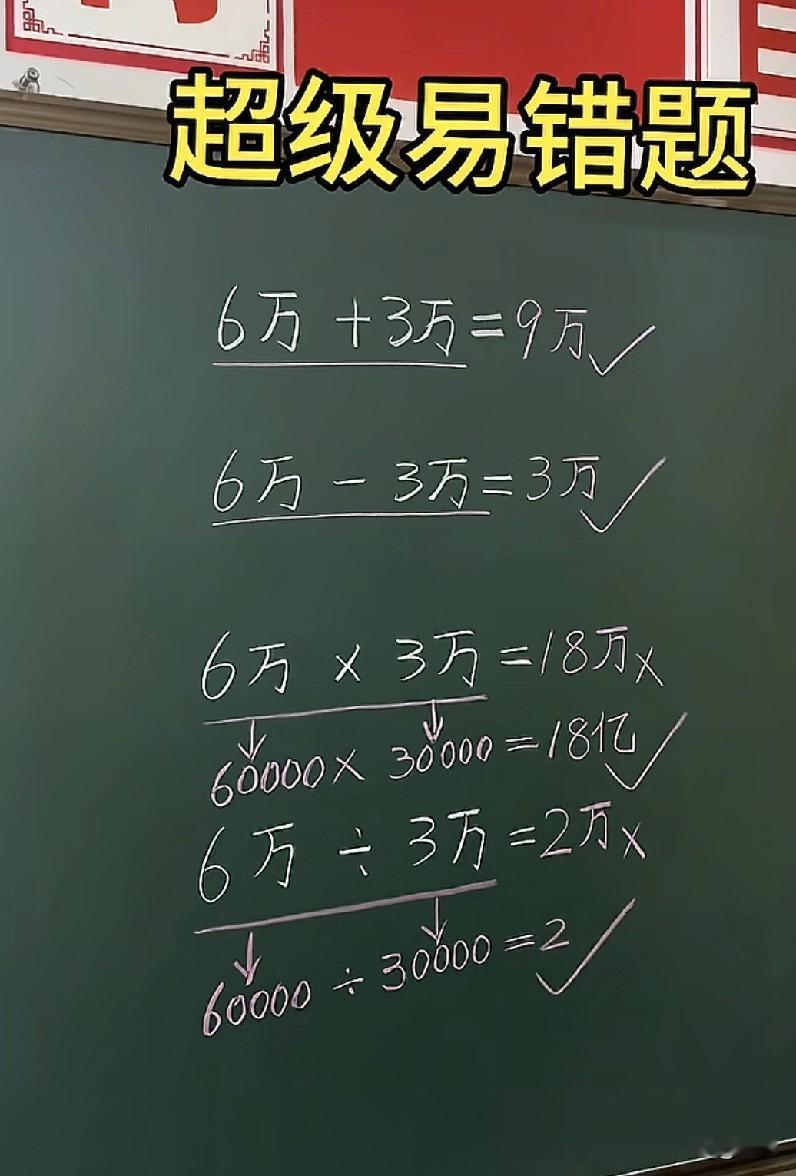 超级易错题
6万+3万=9万✓
6万-3万=3万✓
6万×3万=18万×
60000×30000=18亿✓
6万÷3万=2万×
60000÷30000=2✓